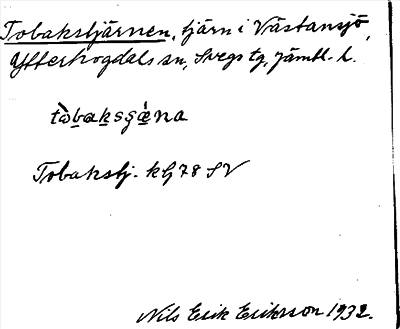 Tobakstjärnen, tjärn i Västansjö,
Ytterhogdals sn, Svegs tg, Jämtl. l.
Tobakstj. kG 78 SV
Nils Erik Eriksson 1932.